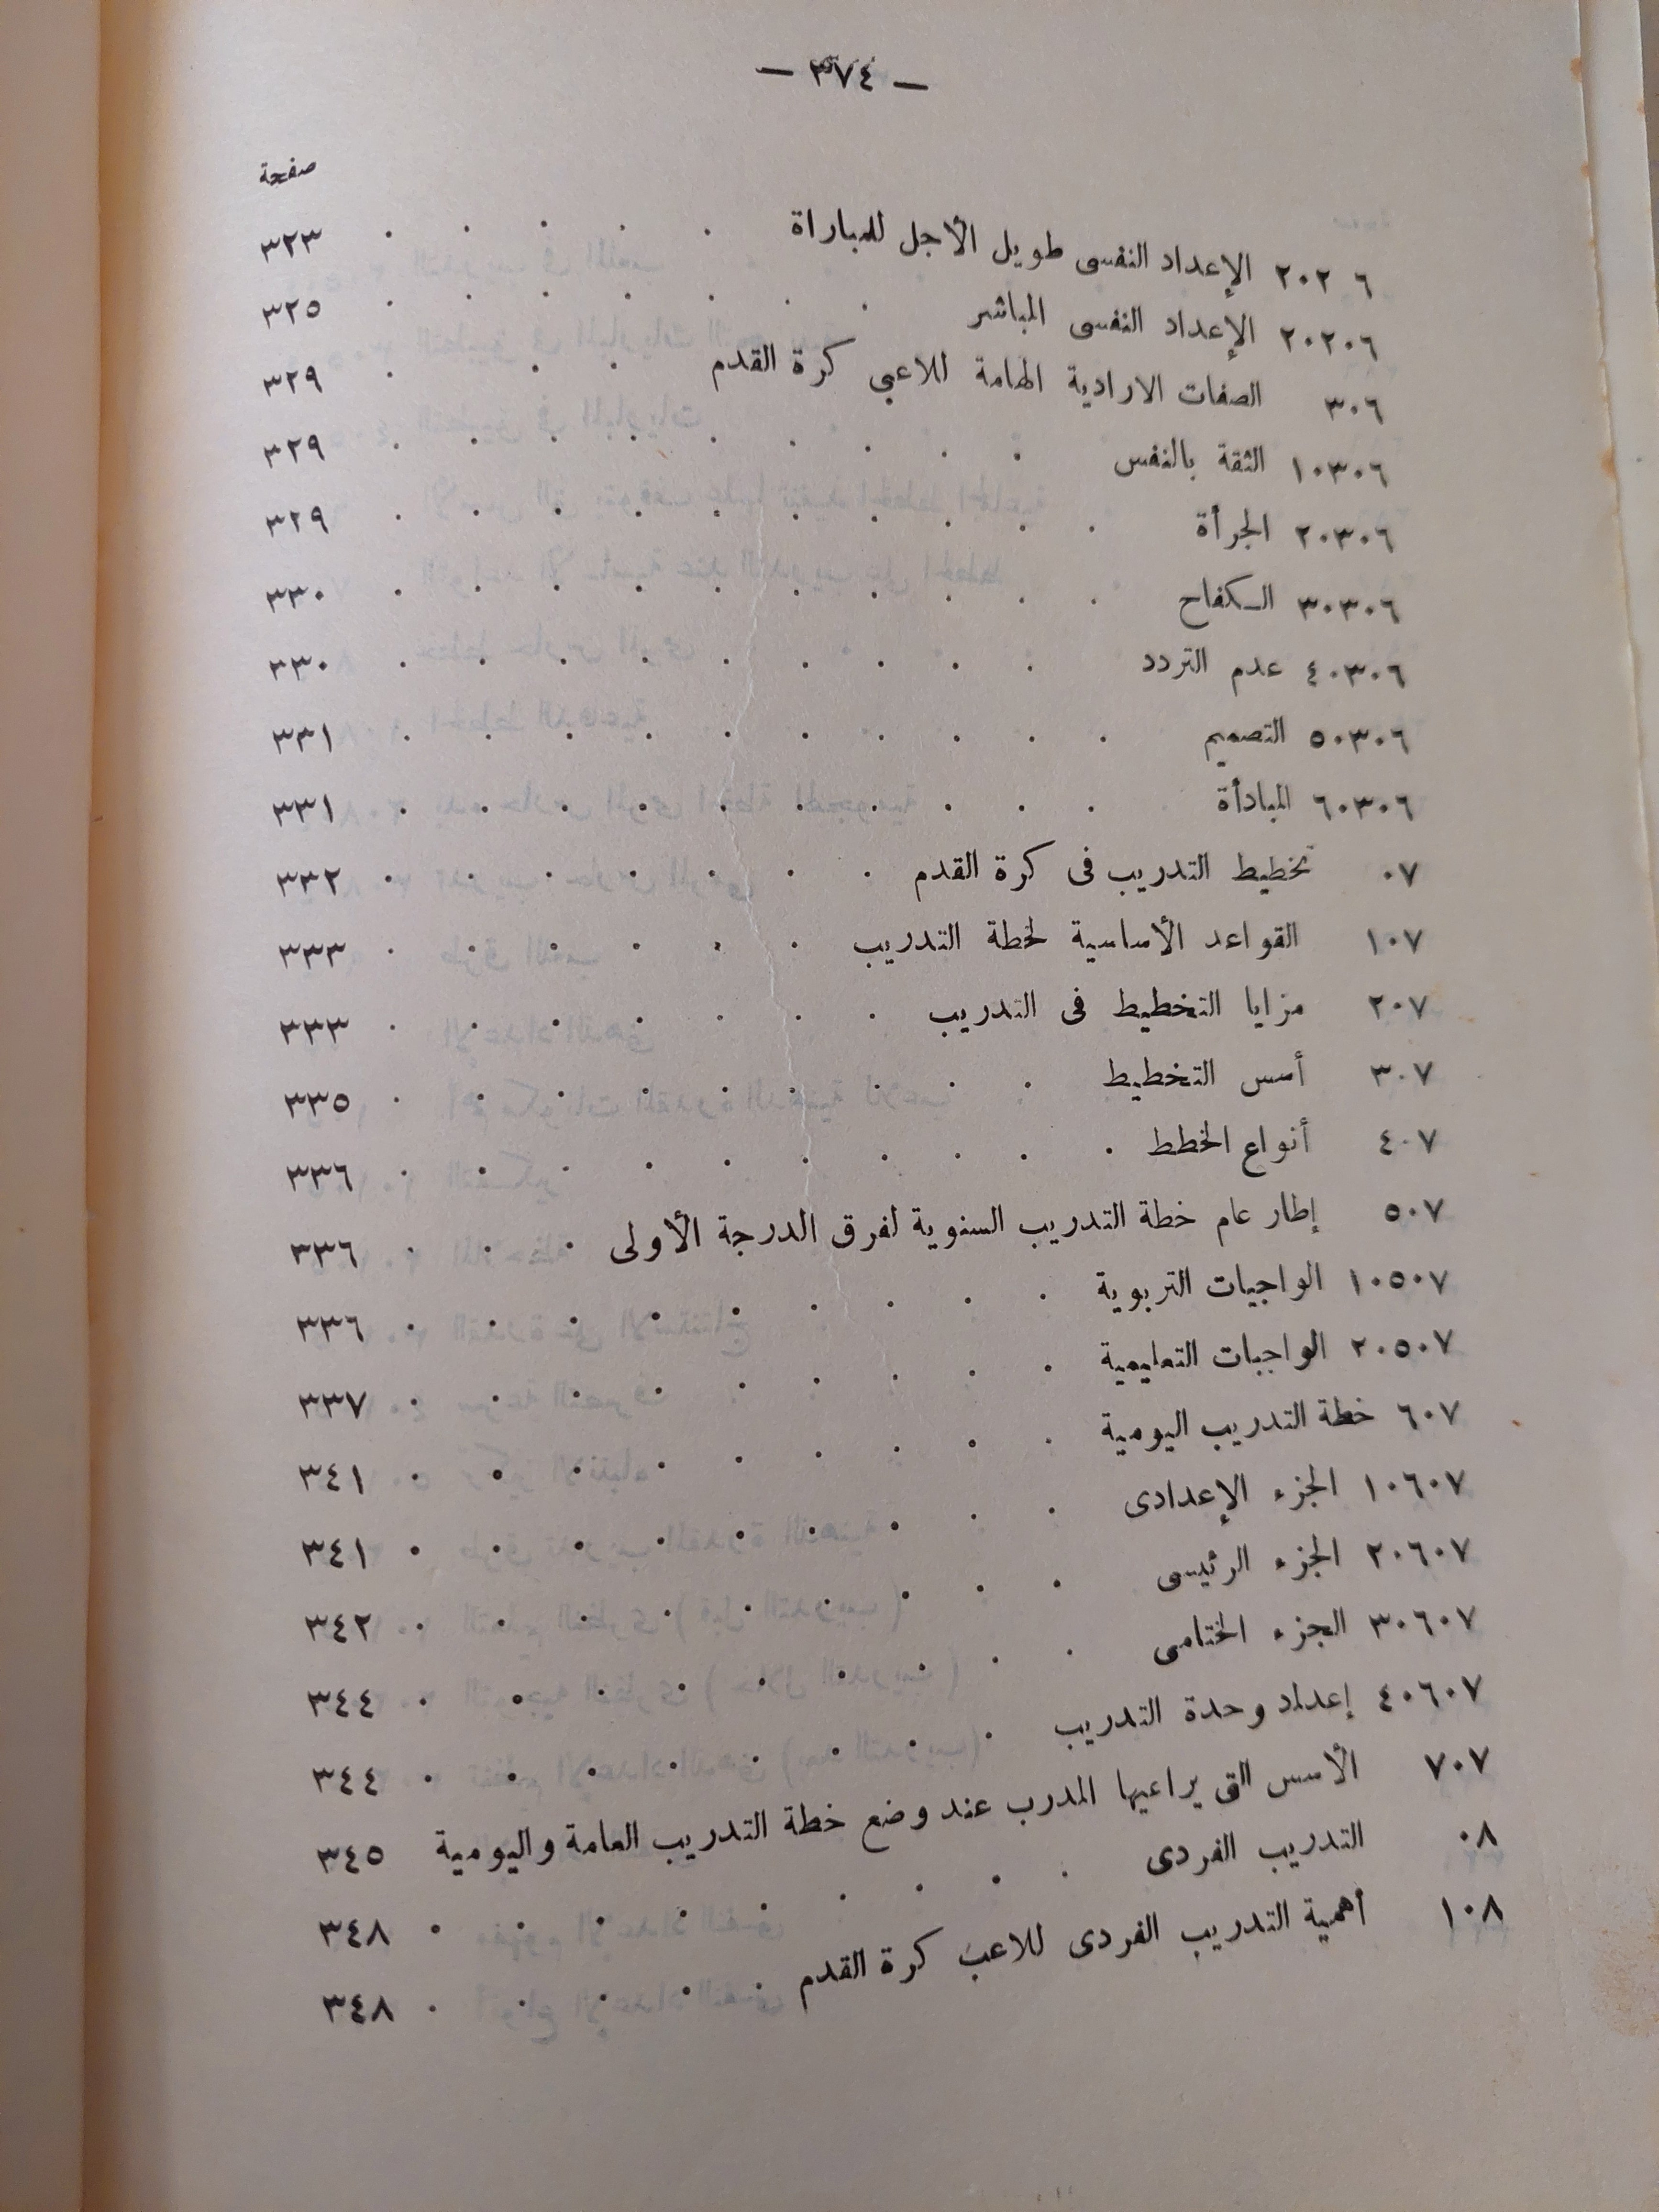 — ٣٧٤ —
صفحة
٦ ٢٠٢ الإعداد النفسى طويل الأجل للمباراة . . . . . ٣٢٣
٢٠٢٠٦ الإعداد النفسى المباشر . . . . . . . ٣٢٥
٣٠٦ الصفات الارادية الهامة للاعبي كرة القدم . . . ٣٢٩
١٠٣٠٦ الثقة بالنفس . . . . . . . . . ٣٢٩
٢٠٣٠٦ الجرأة . . . . . . . . . . ٣٢٩
٣٠٣٠٦ الكفاح . . . . . . . . . . ٣٣٠
٤٠٣٠٦ عدم التردد . . . . . . . . . ٣٣٠
٥٠٣٠٦ التصميم . . . . . . . . . . ٣٣١
٦٠٣٠٦ المبادأة . . . . . . . . . . ٣٣١
٠٧ تخطيط التدريب فى كرة القدم . . . . . . . ٣٣٢
١٠٧ القواعد الأساسية لخطة التدريب . . . . . . ٣٣٣
٢٠٧ مزايا التخطيط فى التدريب . . . . . . . ٣٣٣
٣٠٧ أسس التخطيط . . . . . . . . . ٣٣٥
٤٠٧ أنواع الخطط . . . . . . . . . . ٣٣٦
٥٠٧ إطار عام خطة التدريب السنوية لفرق الدرجة الأولى . . . ٣٣٦
١٠٥٠٧ الواجبات التربوية . . . . . . . . . ٣٣٦
٢٠٥٠٧ الواجبات التعليمية . . . . . . . . . ٣٣٧
٦٠٧ خطة التدريب اليومية . . . . . . . . . ٣٤١
١٠٦٠٧ الجزء الإعدادى . . . . . . . . . ٣٤١
٢٠٦٠٧ الجزء الرئيسى . . . . . . . . . ٣٤٢
٣٠٦٠٧ الجزء الختامى . . . . . . . . . ٣٤٤
٤٠٦٠٧ إعداد وحدة التدريب . . . . . . . . ٣٤٤
٧٠٧ الأسس التى يراعيها المدرب عند وضع خطة التدريب العامة واليومية ٣٤٥
٠٨ التدريب الفردى . . . . . . . . . ٣٤٨
١٠٨ أهمية التدريب الفردى للاعب كرة القدم . . . . . ٣٤٨